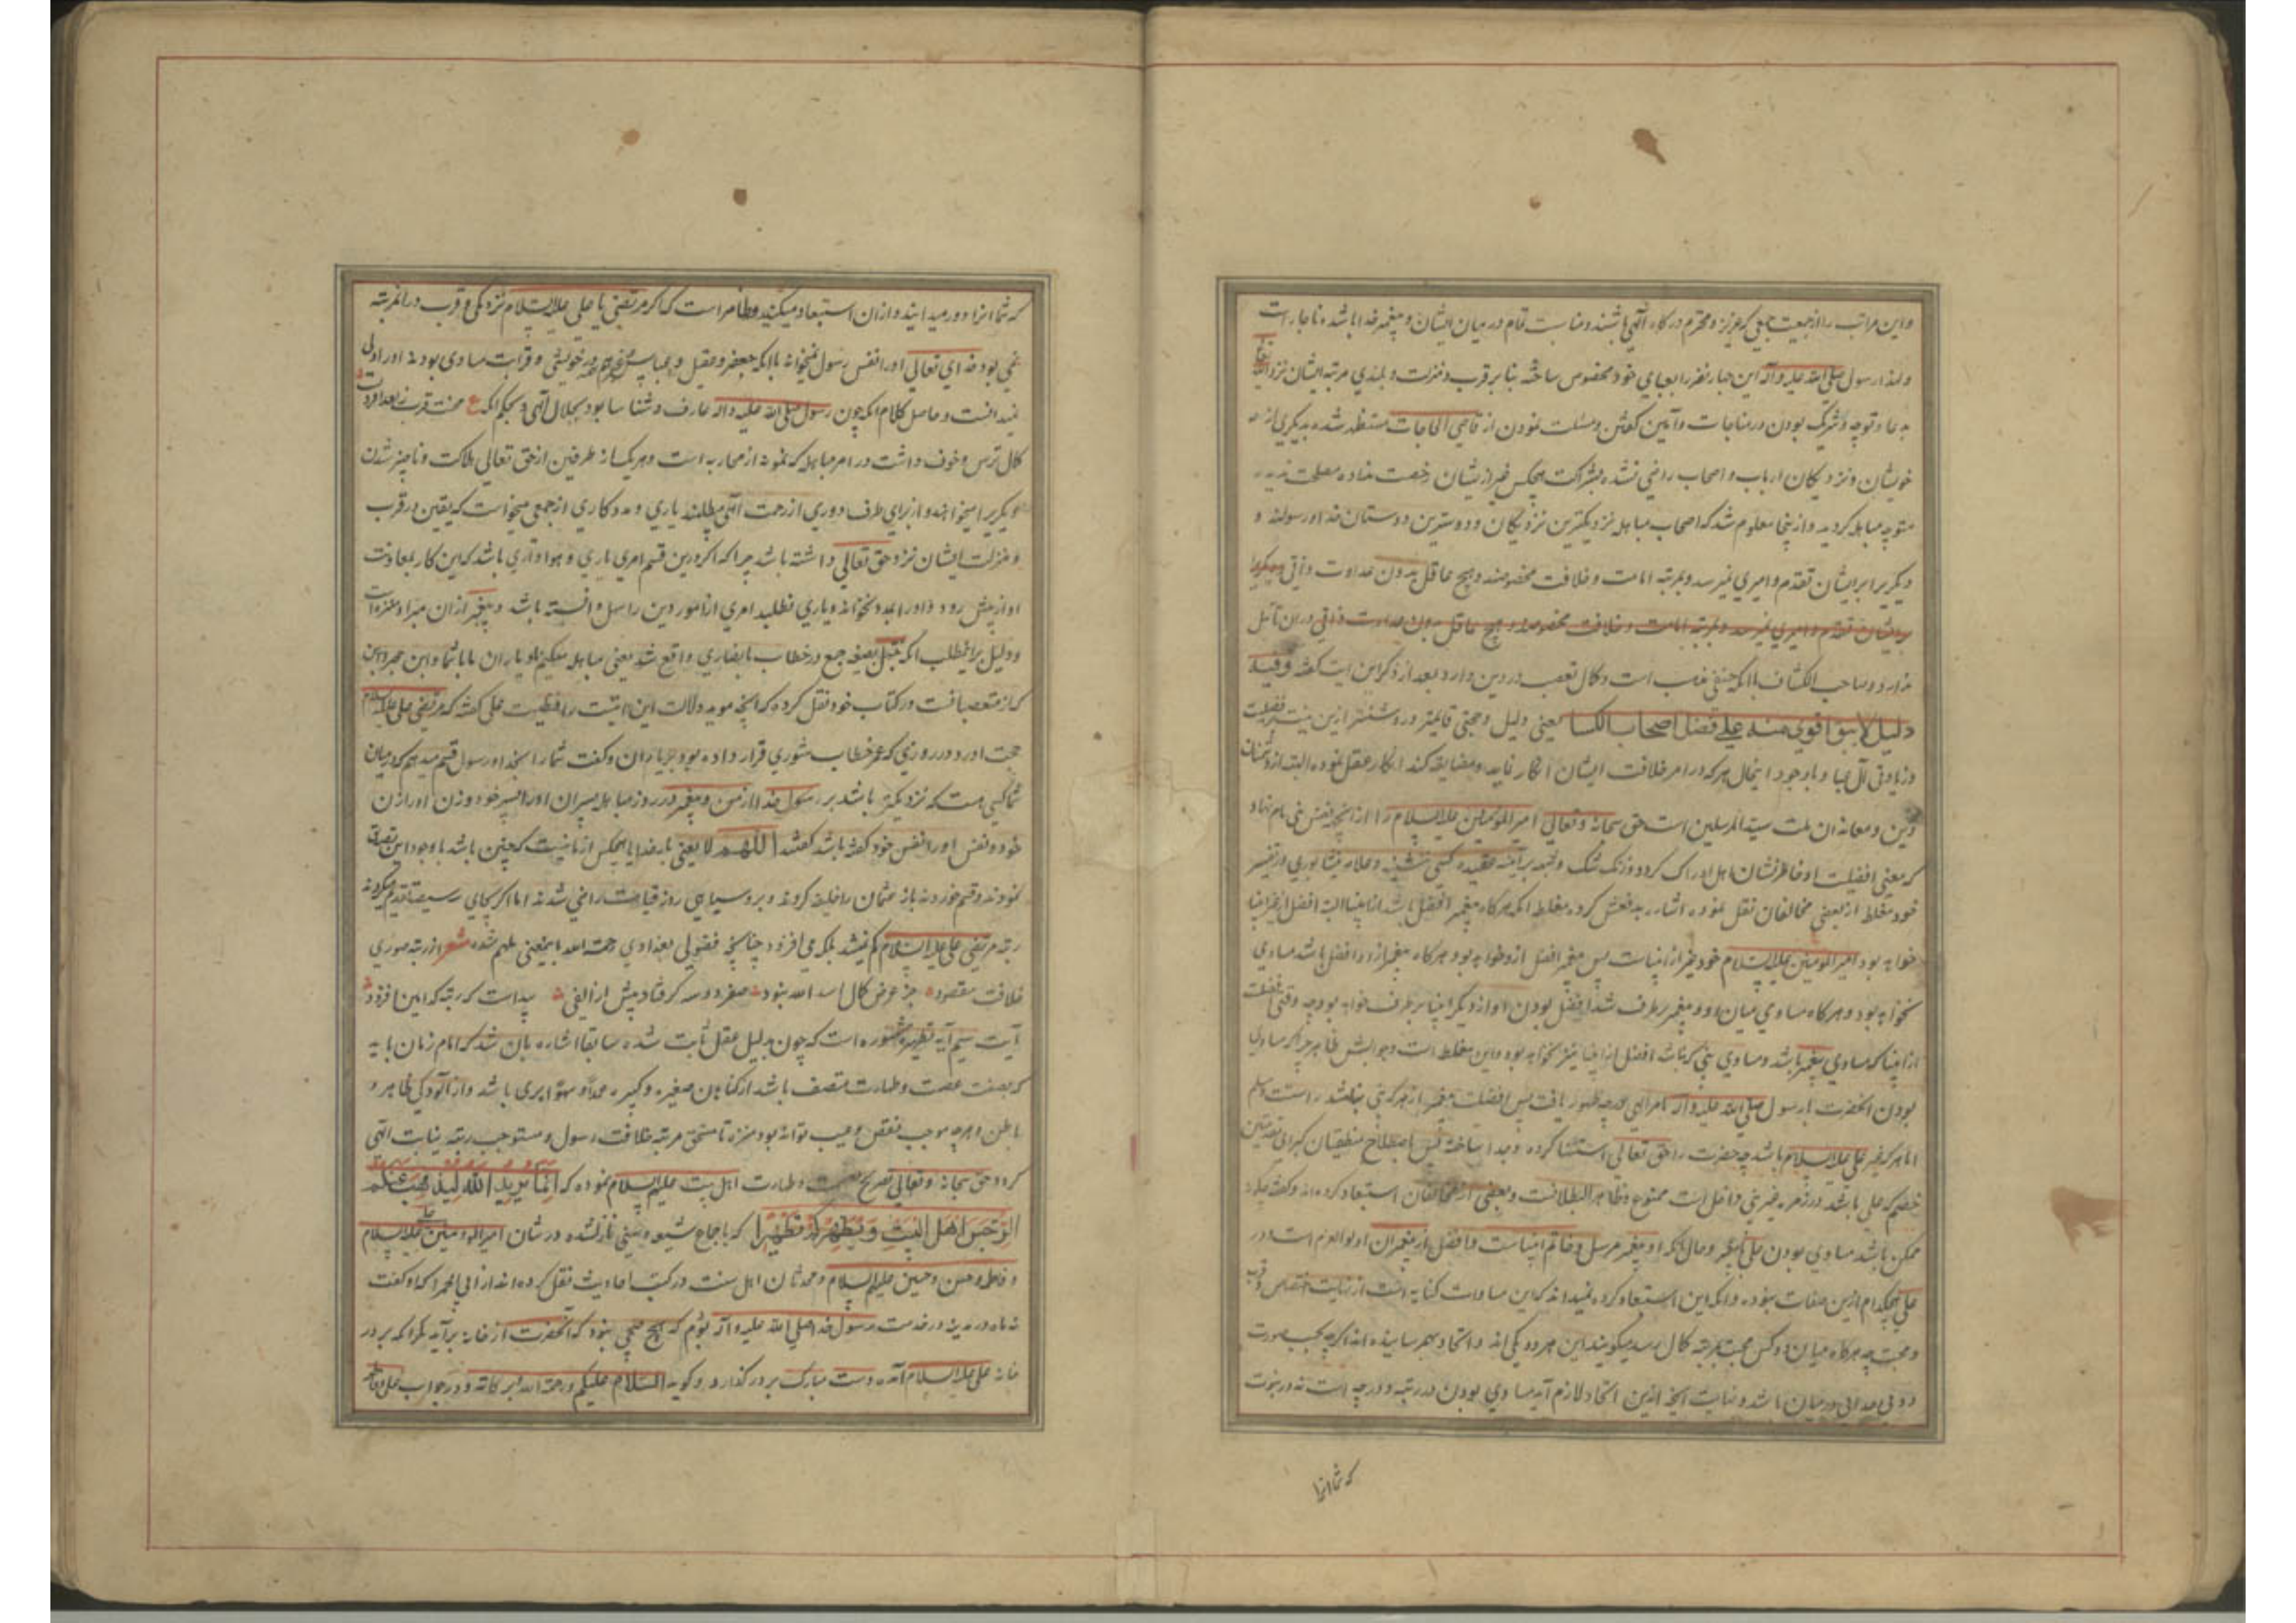 و این مراتب را از جمعیت جمعی که عزیز و محترم درگاه الهی باشند و مناسبت تمام در میان ایشان و پیغمبر خدا باشد ناچار است
و لهذا رسول صلی الله علیه و آله این چهار نفر را بعبای خود مخصوص ساخته بنا بر قرب و منزلت و بلندی مرتبه ایشان نزد
بدعا و توجه و شریک بودن در مناجات و آمین گفتن و مسئلت نمودن از قاضی الحاجات مستظهر شده بدیگری از
خویشان و نزدیکان ارباب و اصحاب راضی نشده بشراکت هیچکس غیر ازیشان رخصت نداده مصلحت ندید
متوجه مباهله گردید و ازینجا معلوم شد که اصحاب مباهله نزدیکترین نزدیکان و دوسترین دوستان خدا و رسولند و
دیگریرا بر ایشان تقدم و امیری نمیرسد و بمرتبه امامت و خلافت مخصوصند و هیچ عاقل بدون عداوت ذاتی
بر ایشان تقدم و امیری نمیرسد و بمرتبه امامت و خلافت مخصوصند و هیچ عاقل بدون عداوت ذاتی در ان تأمل
ندارد و صاحب الکشاف با انکه حنفی مذهب است و کمال تعصب در دین دارد بعد از ذکر این ایت گفته و فیه
دلیل لا شیء اقوی منه علی فضل اصحاب الکسا یعنی دلیل و حجتی قایمتر و روشنتر ازین نیست بر فضیلت
و زیادتی آل عبا و با وجود اینحال هر که در امر خلافت ایشان انکار نماید و مضایقه کند انکار عقل نموده البته از دشمنان
دین و معاندان ملت سید المرسلین است حق سبحانه و تعالی امیر المؤمنین علیه السلام را از انجهة نفس نبی نام نهاد
که معنی افضلیت او خاطرنشان اهل ادراک گردد و زنگ شک و شبهه بر آینه عقیده کسی ننشیند و علامه نیشابوری در تفسیر
خود مغلطه از بعضی مخالفان نقل نموده اشاره بدفعش کرده مغلطه انکه هرگاه پیغمبر افضل باشد از انبیا البته افضل از غیر انبیا
خواهد بود امیر المومنین علیه السلام خود غیر از انبیاست پس پیغمبر افضل ازو خواهد بود و هرگاه پیغمبر ازو افضل باشد مساوی
نخواهد بود و هرگاه مساوی میان او و پیغمبر برطرف شد افضل بودن او از دیگر انبیا برطرف خواهد بود چه وقتی افضلست
از انبیا که مساوی پیغمبر باشد و مساوی نبی که نباشد افضل از انبیا نیز نخواهد بود و این مغلطه است و جوابش ظاهر چرا که مساوی
بودن انحضرت با رسول صلی الله علیه و آله بامر الهی بدرجه ظهور یافت پس افضلیت پیغمبر از هر که نبی نباشد راست و مسلم
اما هر که غیر علی علیه السلام باشد چه حضرت را حق تعالی استثنا کرده و جدا ساخته پس باصطلاح منطقیان کبرای
خصم که علی باشد در زمره غیر نبی داخل است ممنوع و ظاهر البطلانست و بعضی از مخالفان استبعاد کرده اند و گفته چگونه
ممکن باشد مساوی بودن علی با پیغمبر و حال انکه او پیغمبر مرسل و خاتم انبیاست و افضل از پیغمبران اولو العزم است و در
علی هیچکدام ازین صفات نبوده و انکه این استبعاد کرده نمیداند که این مساوات کنایه است از نهایت اختصاص و قرب
و محبت چه هرگاه میان دو کس محبت بدرجه کمال رسد میگویند این هر دو یکی اند و اتحاد بهم رسانیده اند اگرچه بحسب صورت
دوئی جدائی در میان باشد و نهایت انچه ازین اتحاد لازم آید مساوی بودن در رتبه و درجه است نه در نبوت
که شما انرا
که شما انرا دور میدانید و از ان استبعاد میکنید و ظاهر است که اگر مرتضی یا علی علیه السلام نزدیکی و قرب در انمرتبه
نمی بود خدای تعالی او را نفس رسول نمیخواند با انکه جعفر و عقیل و عباس و غیرهم در خویشی و قرابت مساوی بودند او را اولی
نمیدانست و حاصل کلام انکه چون رسول صلی الله علیه و اله عارف و شناسا بود بجلال الهی و بحکم انکه ع محنت قرب ز بعد افزونست
کمال ترس و خوف داشت در امر مباهله که نمونه از محاربه است و هر یک از طرفین از حق تعالی هلاکت و ناچیز شدن
دیگریرا میخواهند و از برای طرف دوری از رحمت آلهی میطلبند یاری و مددکاری از جمعی میخواست که یقین در قرب
و منزلت ایشان نزد حق تعالی داشته باشد چرا که اگر درین قسم امری یاری و هواداری باشد که این کار بمعاونت
او از پیش رود و او را بمدد نخواند و یاری نطلبد امری از امور دین را سهل دانسته باشد و پیغمبر از ان مبرا و منزه است
و دلیل برینمطلب انکه نبتهل بصیغه جمع در خطاب با نصاری واقع شد یعنی مباهله میکنیم ما و یاران ما با شما و ابن حجر و این
که از متعصبانست در کتاب خود نقل کرده که انچه موید دلالت این ایتست بر افضلیت علی گفته که مرتضی علی علیه السلام
حجت آورد در روزی که عمر خطاب شوری قرار داده بود بر یاران و گفت شما را بخدا و رسول قسم میدهم که در میان
شما کسی هست که نزدیکتر باشد برسول خدا از من و پیغمبر در روز مباهله پسران او را پسر خود و زن او را زن
خود و نفس او را نفس خود گفته باشد گفتند اللهم لا یعنی بار خدایا هیچکس از ما نیست که چنین باشد با وجود این تصدیق
نمودند و قسم خوردند باز عثمان را خلیفه کردند و بروسیاهی روز قیامت راضی شدند اما اگر بجای رسیصد تقدم میکردند
رتبه مرتضی علی علیه السلام کم نمیشد بلکه می افزود چنانچه فضولی بغدادی رحمت الله باینمعنی ملهم شده شعر از رتبه صوری
خلافت مقصود جز عرض کمال اسد الله نبود صفر دو سه گر فتاد پیش از الفی پیداست که رتبه که امین افزود
آیت سیم آیه تطهیر مشهوره است که چون بدلیل عقل ثابت شده سابقا اشاره بان شد که امام زمان باید
که بصفت عصمت و طهارت متصف باشد از گناهان صغیره و کبیره عمدا و سهوا بری باشد و از آلودگی ظاهر و
باطن و هر چه موجب نقص و عیب تواند بود منزه تا مستحق مرتبه خلافت رسول و مستوجب رتبه نیابت الهی
گردد حق سبحانه و تعالی تصریح بعصمت و طهارت اهل بیت علیهم السلام نموده که انما یرید الله لیذهب عنکم
الرجس اهل البیت و یطهرکم تطهیرا که باجماع شیعه و سنی نازلشده در شان امیر المومنین علی علیه السلام
و فاطمه و حسن و حسین علیهم السلام و محدثان اهل سنت در کتب احادیث نقل کرده اند از ابی الحمرا که او گفت
نه ماه در مدینه در خدمت رسول خدا صلی الله علیه و آله بودم که هیچ صبحی نبود که آنحضرت از خانه برآید مگر انکه بر در
خانه علی علیه السلام آمده دست مبارک بر در گذارد و گوید السلام علیکم و رحمة الله و برکاته و در جواب علی و فاطمه